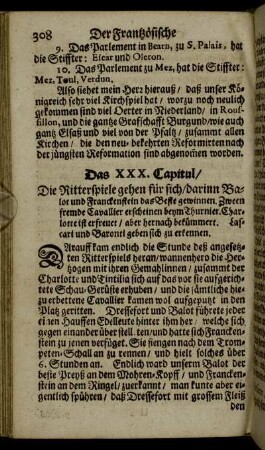 308 Der Frantzösische
9. Das Parlement in Bearn, zu S. Palais, hat
die Stiffter: Escar und Oleron.
10. Das Parlement zu Mez, hat die Stiffter:
Mez, Toul, Verdun.
Also siehet mein Herz hierauß / daß unser Kö-
nigreich sehr viel Kirchspiel hat / worzu noch neulich
gekommen sind viel Oerter in Niederland / in Rous-
sillon, und die gantz Grafschafft Burgund / wie auch
gantz Elsaß und viel von der Pfaltz / zusammt allen
Kirchen / die den neu-bekehrten Reformirten nach
der jüngsten Reformation sind abgenom̃en worden.
Das XXX. Capitul /
Die Ritterspiele gehen für sich / darinn Ba-
lot und Franckenstein das Beste gewinnen. Zween
fremde Cavallier erscheinen beym Thurnier. Char-
lotte ist erfreuet / aber hernach bekümmert.
cari und Baronii geben sich zu erkennen.
Darauff kam endlich die Stunde deß angesetz-
ten Ritterspiels heran / wannenhero die Her-
zogen mit ihren Gemahlinnen / zusammt der
Charlotte und Tintilia sich auf das vor sie aufgerich-
tete Schau-Gerüste erhuben / und die sämtliche hie-
zu erbettene Cavallier kamen wol aufgeputzt in den
Platz geritten. Dressefort und Balot führete jeder
ei nen Hauffen Edelleute hinter ihm her / welche sich
gegen einander über stell ten / und hatte sich Francken-
stein zu jenen verfüget. Sie fiengen nach dem Trom-
peten-Schall an zu rennen / und hielt solches über
6. Stunden an. Endlich ward unserm Balot der
beste Preyß an dem Mohren-Kopff / und Francken-
stein an dem Ringel / zuerkannt / man kunte aber ei-
gentlich spühren / daß Dressefort mit grossem Fleiß
den